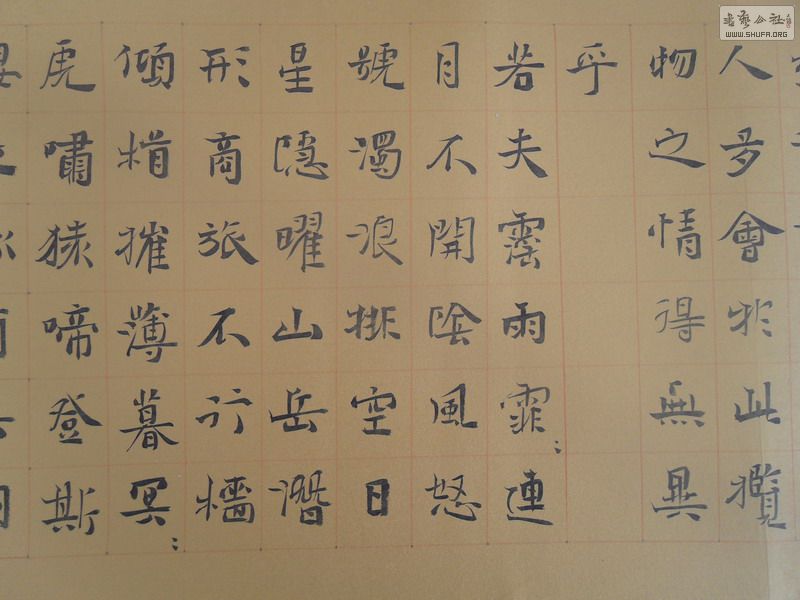 人多會於此攬
物之情得無異
乎
若夫霪雨霏〻連
月不開陰風怒
號濁浪排空日
星隱曜山岳潛
形商旅不行檣
傾楫摧薄暮冥〻
虎嘯猿啼登斯
书艺公社
WWW.SHUFA.ORG